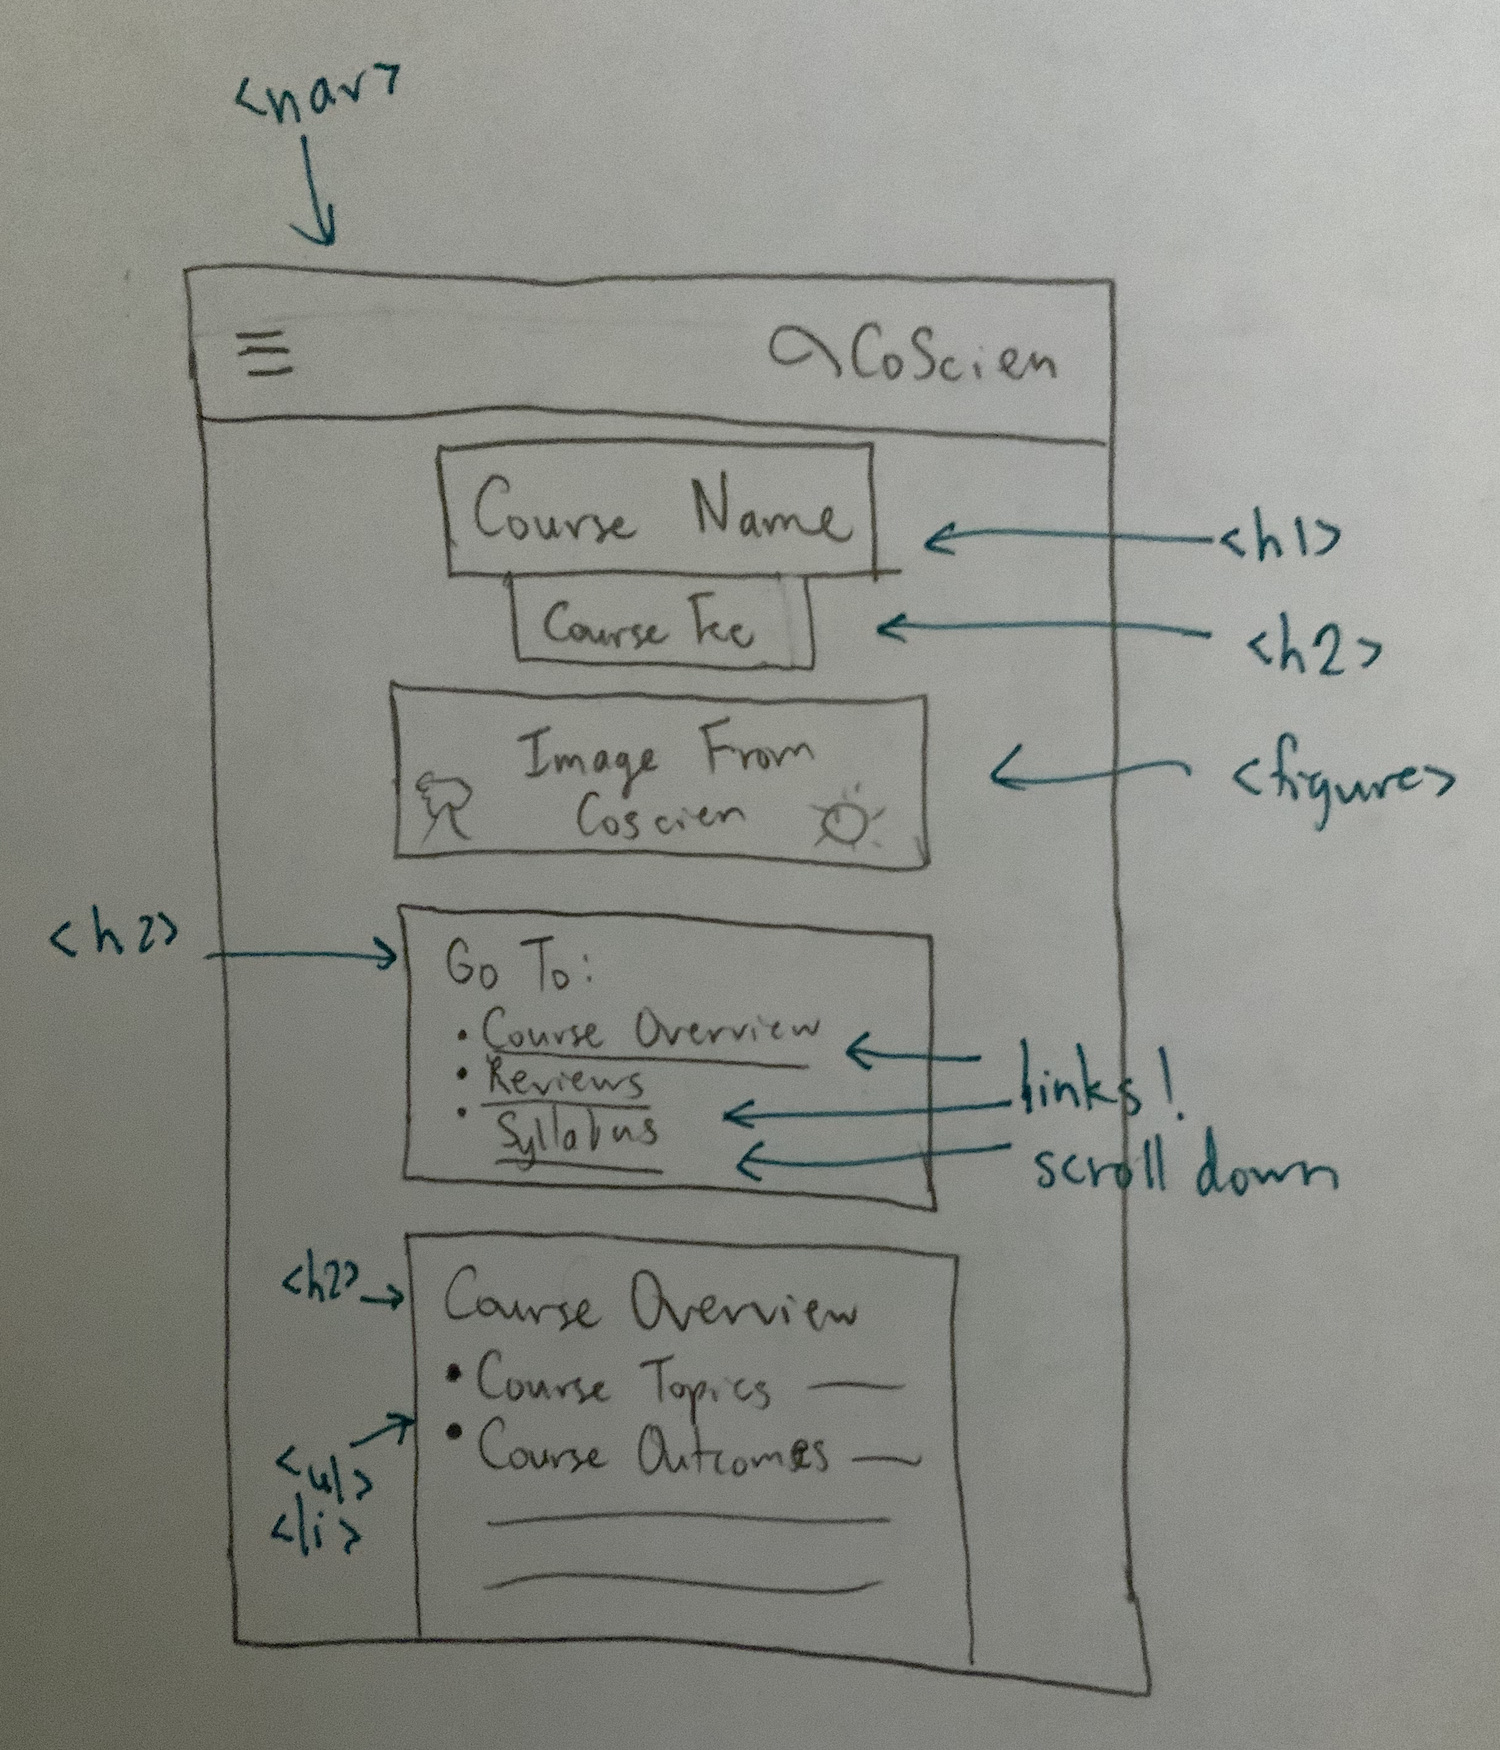 <nav>
CoScien
Course Name
<h1>
Course Fee
<h2>
Image From
Coscien
<figure>
<h2>
Go To:
• Course Overview
• Reviews
• Syllabus
links!
scroll down
<h2>
Course Overview
• Course Topics
• Course Outcomes
<ul>
<li>